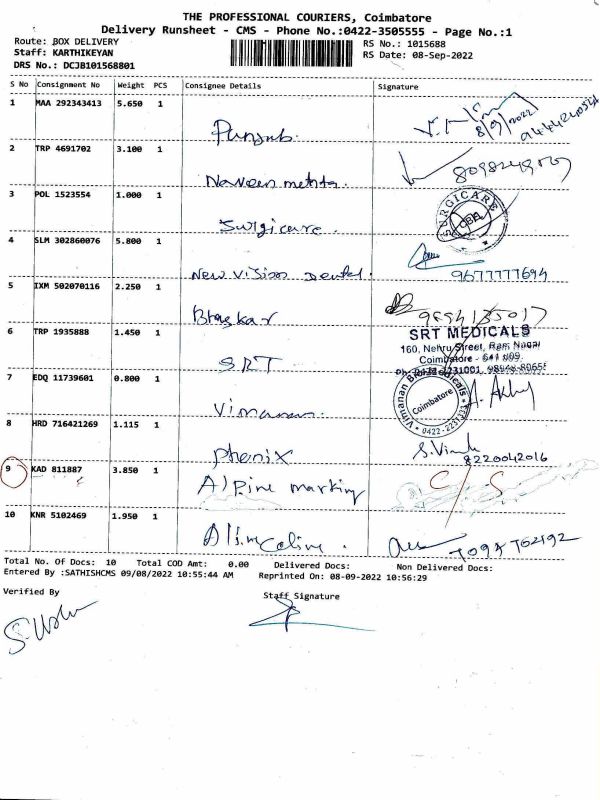 THE PROFESSIONAL COURIERS, Coimbatore
Delivery Runsheet - CMS - Phone No.:0422-3505555 - Page No.:1
Route: BOX DELIVERY
Staff: KARTHIKEYAN
DRS No.: DCJB101568801
RS No.: 1015688
RS Date: 08-Sep-2022
S No Consignment No Weight PCS Consignee Details Signature
1 MAA 292343413 5.650 1 Punjab.
8/9/2022
2 TRP 4691702 3.100 1 Naveen mehta.
3 POL 1523554 1.000 1 Surgicare.
SURGICARE
CBE
4 SLM 302860076 5.800 1 New Vision Dental.
9677777694
5 IXM 502070116 2.250 1 Bhaskar
6 TRP 1935888 1.450 1 SRT
SRT MEDICALS
160, Nehru Street, Ram Nagar
Coimbatore - 641 009.
7 EDQ 11739601 0.800 1 Vimanan.
Coimbatore
8 HRD 716421269 1.115 1 Phenix
8220042016
9 KAD 811887 3.850 1 Alpine marking
C/S
10 KNR 5102469 1.950 1
Total No. Of Docs: 10 Total COD Amt: 0.00 Delivered Docs: Non Delivered Docs:
Entered By :SATHISHCMS 09/08/2022 10:55:44 AM Reprinted On: 08-09-2022 10:56:29
Verified By
Staff Signature